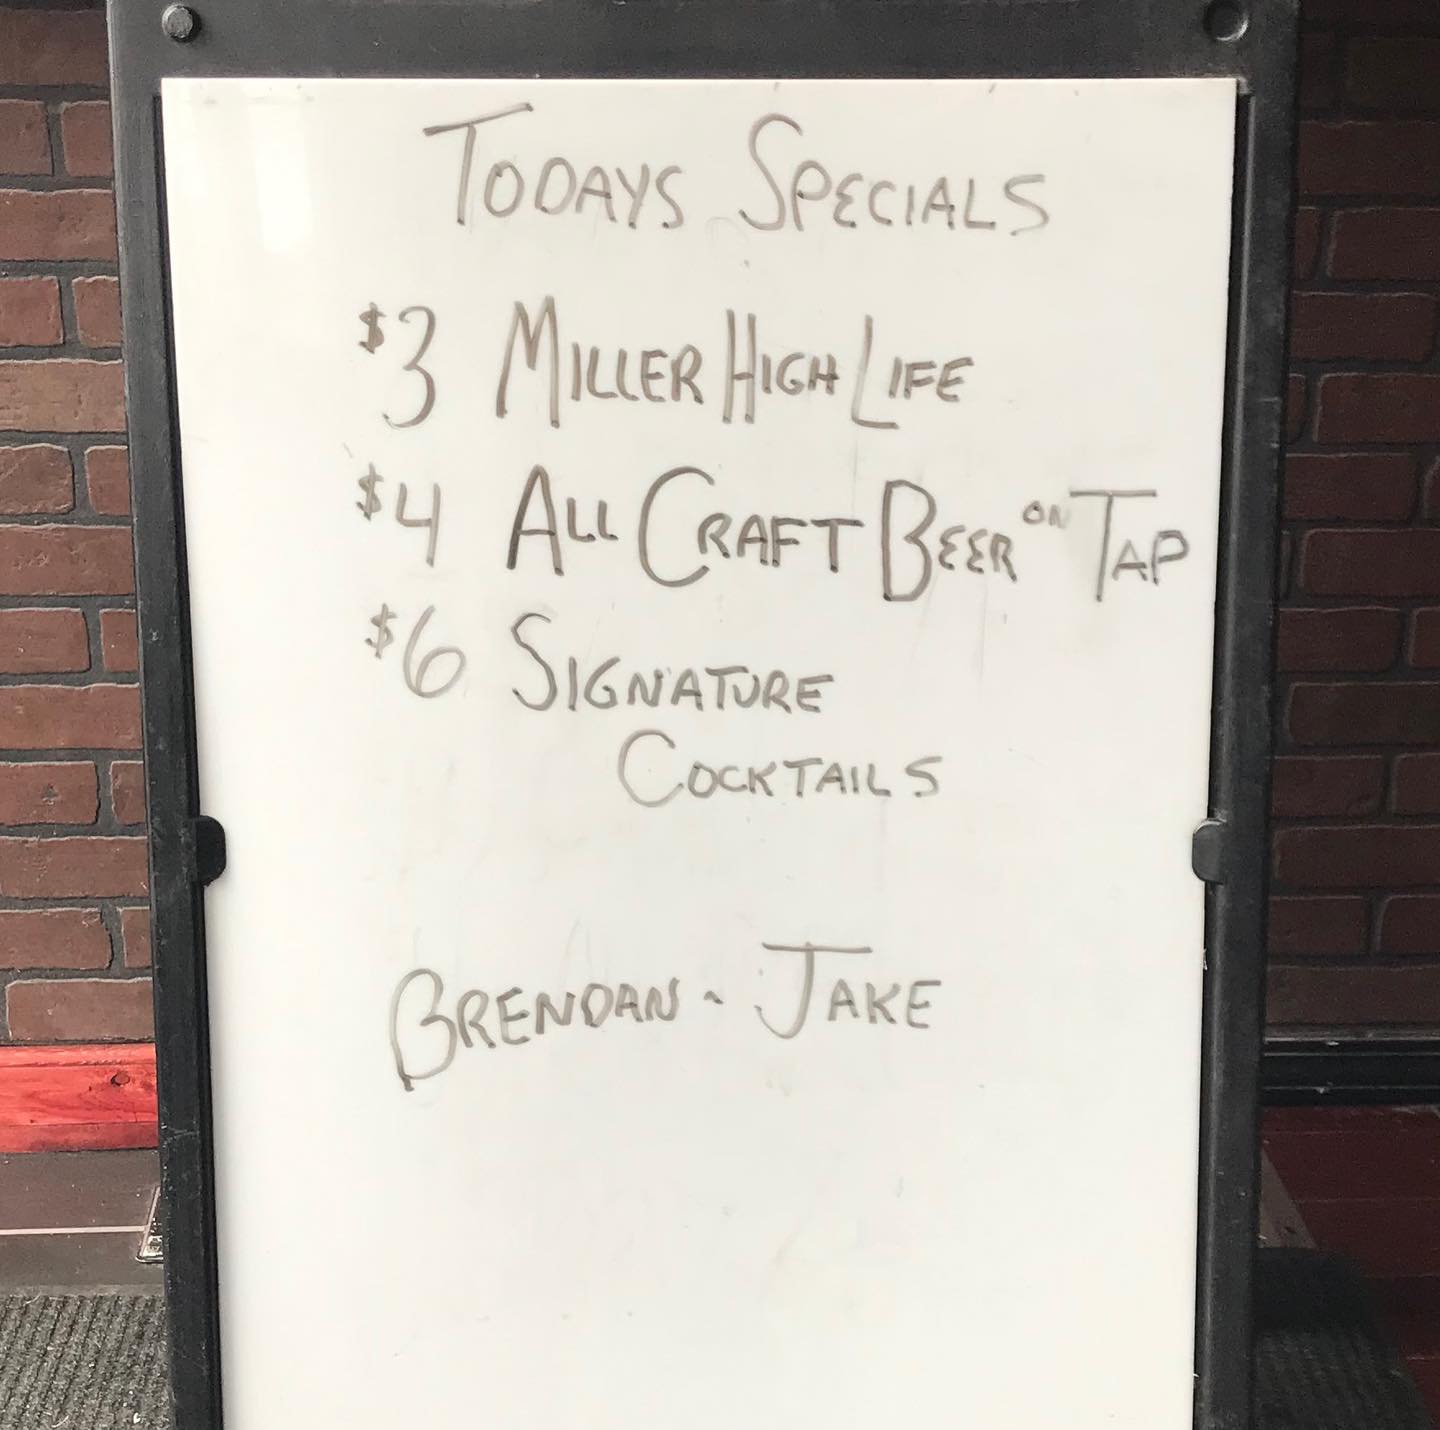 TODAYS SPECIALS
$3 MILLER HIGH LIFE
$4 ALL CRAFT BEER ON TAP
$6 SIGNATURE
COCKTAILS
BRENDAN - JAKE